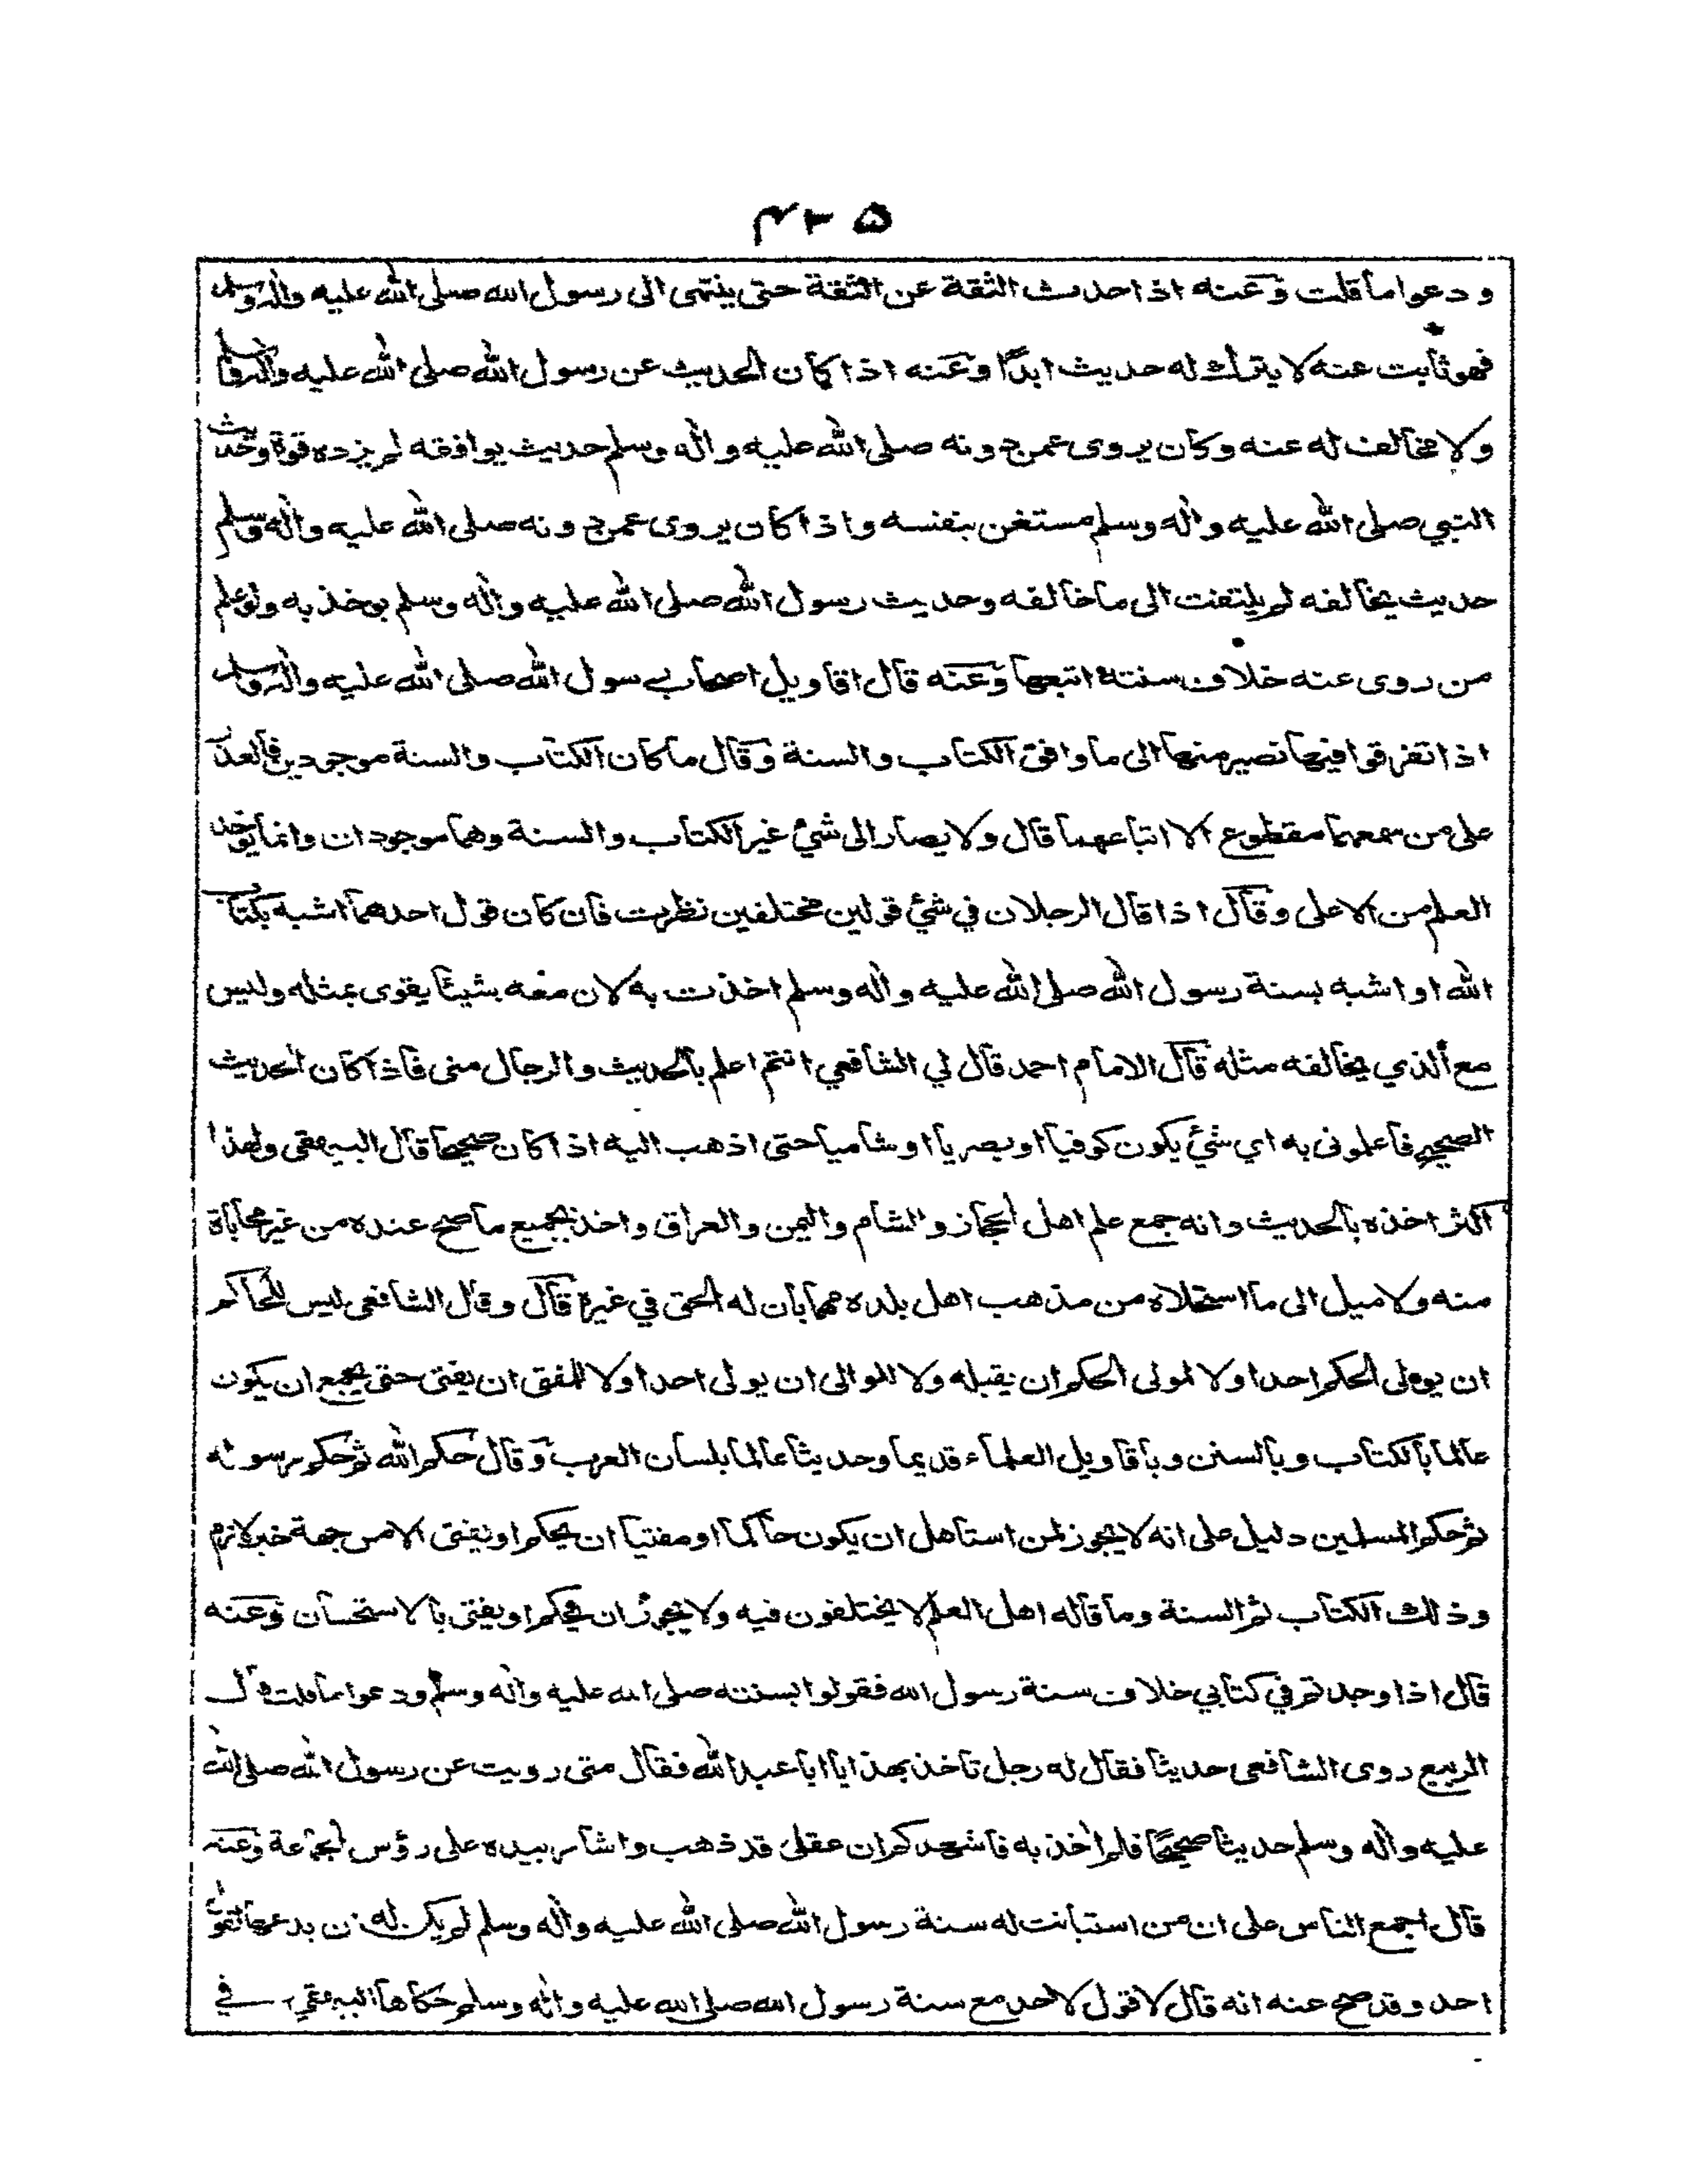 ۴۲۵
ودعوا ما قلت وعنه اذا حدث الثقة عن الثقة حتى ينتهى الى رسول الله صلى الله عليه واله وسلم
فهو ثابت عنه لا يترك له حديث ابدًا وعنه اذا كان الحديث عن رسول الله صلى الله عليه واله وسلم
ولا مخالف له عنه وكان يروى عمن دونه صلى الله عليه واله وسلم حديث يوافقه لم يزده قوة وحديث
النبي صلى الله عليه واله وسلم مستغن بنفسه واذا كان يروى عمن دونه صلى الله عليه واله وسلم
حديث يخالفه لم يلتفت الى ما خالفه وحديث رسول الله صلى الله عليه واله وسلم يوخذ به ولو علم
من روى عنه خلاف سنته اتبعها وعنه قال اقاويل اصحاب رسول الله صلى الله عليه واله وسلم
اذا تفرقوا فيها نصير منها الى ما وافق الكتاب والسنة وقال ما كان الكتاب والسنة موجودين فالعذر
على من سمعهما مقطوع الا اتباعهما قال ولا يصار الى شئ غير الكتاب والسنة وهما موجودان وانما يوخذ
العلم من الاعلى وقال اذا قال الرجلان في شئ قولين مختلفين نظرت فان كان قول احدهما اشبه بكتاب
الله او اشبه بسنة رسول الله صلى الله عليه واله وسلم اخذت به لان معه بشيئا يقوى بمثله وليس
مع الذي يخالفه مثله قال الامام احمد قال لي الشافعي انتم اعلم بالحديث والرجال منى فاذا كان الحديث
الصحيح فاعلمونى به اي شئ يكون كوفيا او بصريا او شاميا حتى اذهب اليه اذا كان صحيحا قال البيهقى ولهذا
اكثر اخذه بالحديث وانه جمع علم اهل الحجاز والشام واليمن والعراق واخذ بجميع ما صح عنده من غير محاباة
منه ولا ميل الى ما استحلاه من مذهب اهل بلده مهما بان له الحق في غيره قال وقال الشافعى ليس للحاكم
ان يولى الحكم احدا ولا لمولى الحكم ان يقبله ولا للوالى ان يولى احدا ولا للمفتى ان يفتى حتى يجمع ان يكون
عالما بالكتاب وبالسنن وباقاويل العلماء قديما وحديثا عالما بلسان العرب وقال حكم الله ثم حكم رسوله
ثم حكم المسلمين دليل على انه لا يجوز لمن استاهل ان يكون حاكما او مفتيا ان يحكم او يفتى الا من جهة خبر لازم
وذلك الكتاب ثم السنة وما قاله اهل العلم لا يختلفون فيه ولا يجوز ان يحكم او يفتى بالاستحسان وعنه
قال اذا وجدتم في كتابي خلاف سنة رسول الله فقولوا بسنته صلى الله عليه واله وسلم ودعوا ما قلت قال
الربيع روى الشافعى حديثا فقال له رجل تاخذ بهذا يا ابا عبد الله فقال متى رويت عن رسول الله صلى الله
عليه واله وسلم حديثا صحيحًا فلم اخذ به فاشهدكم ان عقلى قد ذهب واشار بيده على رؤس الجماعة وعنه
قال اجمع الناس على ان من استبانت له سنة رسول الله صلى الله عليه واله وسلم لم يكن له ان يدعها لقول
احد وقد صح عنه انه قال لا قول لاحد مع سنة رسول الله صلى الله عليه واله وسلم حكاها البيهقي في